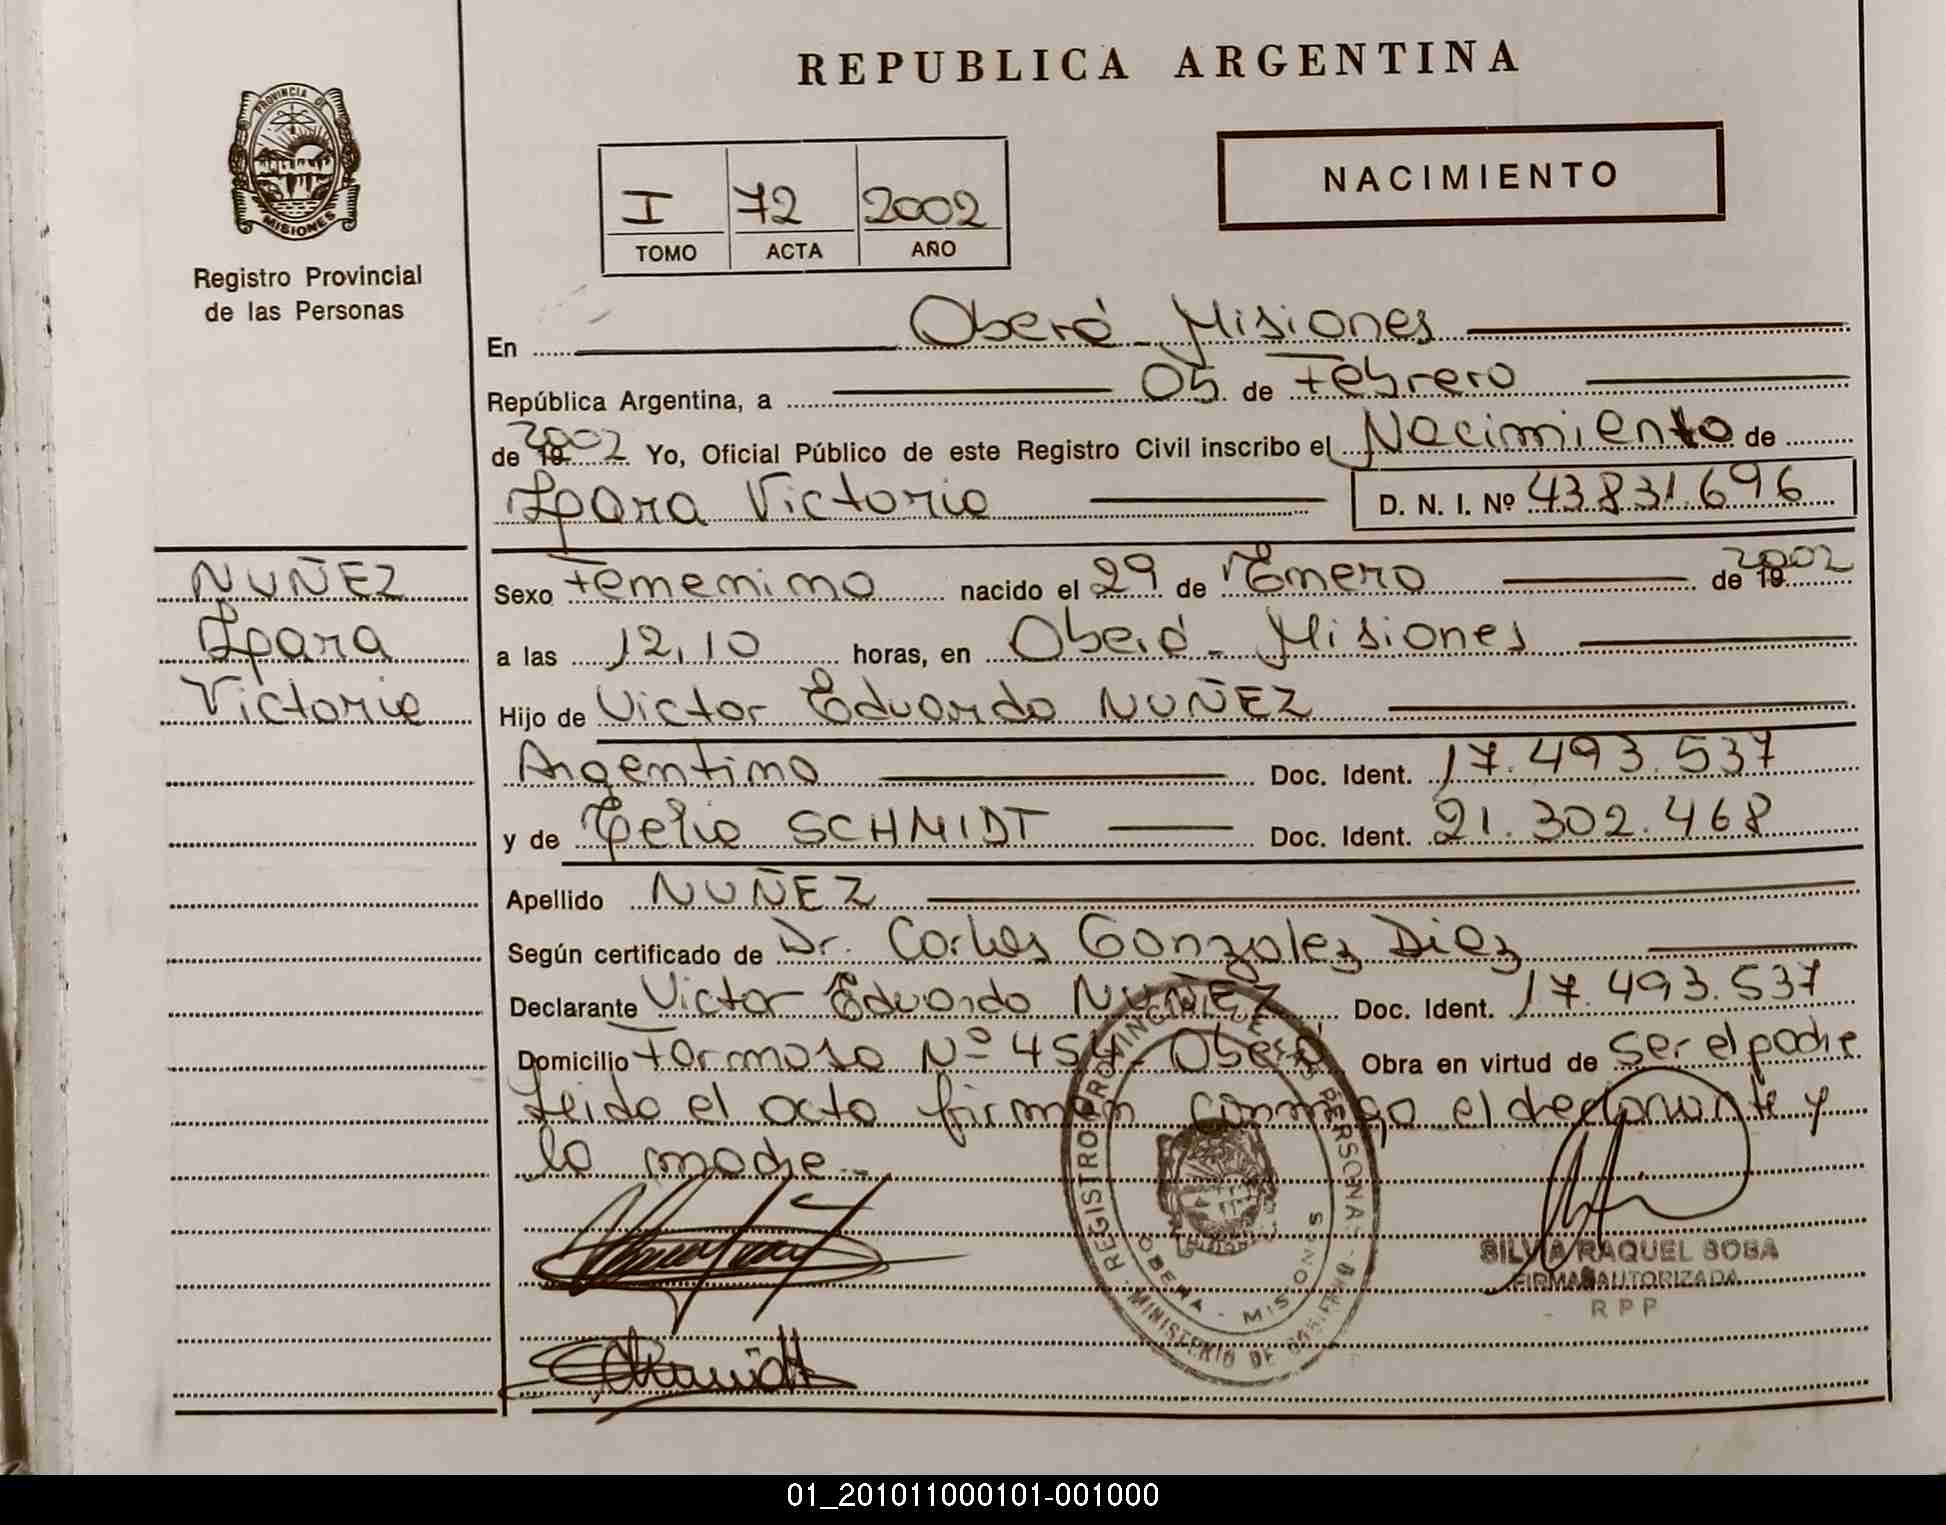 REPUBLICA ARGENTINA
PROVINCIA DE
MISIONES
Registro Provincial
de las Personas
NACIMIENTO
I 72 2002
TOMO ACTA AÑO
En Oberá - Misiones
República Argentina, a 05 de Febrero
de 19 2002 Yo, Oficial Público de este Registro Civil inscribo el Nacimiento de
Victoria D. N. I. Nº 43.831.696
NUÑEZ
Victoria
Sexo Femenino nacido el 29 de Enero de 19 2002
a las 12,10 horas, en Oberá - Misiones
Hijo de Victor Eduardo NUÑEZ
Argentino Doc. Ident. 17.493.537
y de Celia SCHMIDT Doc. Ident. 21.302.468
Apellido NUÑEZ
Según certificado de Dr. Carlos Gonzalez Diez
Declarante Victor Eduardo NUÑEZ Doc. Ident. 17.493.537
Domicilio Formosa Nº 454 - Oberá Obra en virtud de ser el padre
Leida el acta firman conmigo el declarante y
la madre.-
REGISTRO PROVINCIAL DE LAS PERSONAS
OBERA - MISIONES
MINISTERIO DE GOBIERNO
SILVIA RAQUEL SOSA
FIRMA AUTORIZADA
RPP
Schmidt
01_201011000101-001000